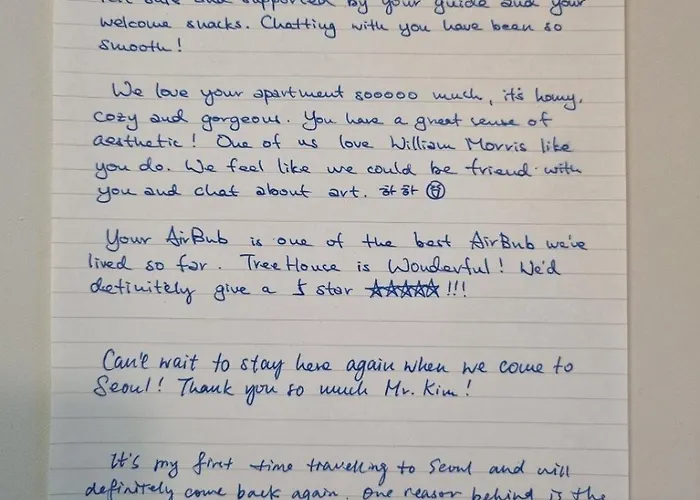 felt safe and supported by your guide and your
welcome snacks. Chatting with you have been so
smooth!
We love your apartment sooooo much, it's homy,
cozy and gorgeous. You have a great sense of
aesthetic! One of us love William Morris like
you do. We feel like we could be friend with
you and chat about art. 하하
Your AirBnb is one of the best AirBnb we've
lived so far. TreeHouse is Wonderful! We'd
definitely give a 5 star ☆☆☆☆☆!!!
Can't wait to stay here again when we come to
Seoul! Thank you so much Mr. Kim!
It's my first time travelling to Seoul and will
definitely come back again. One reason behind is the